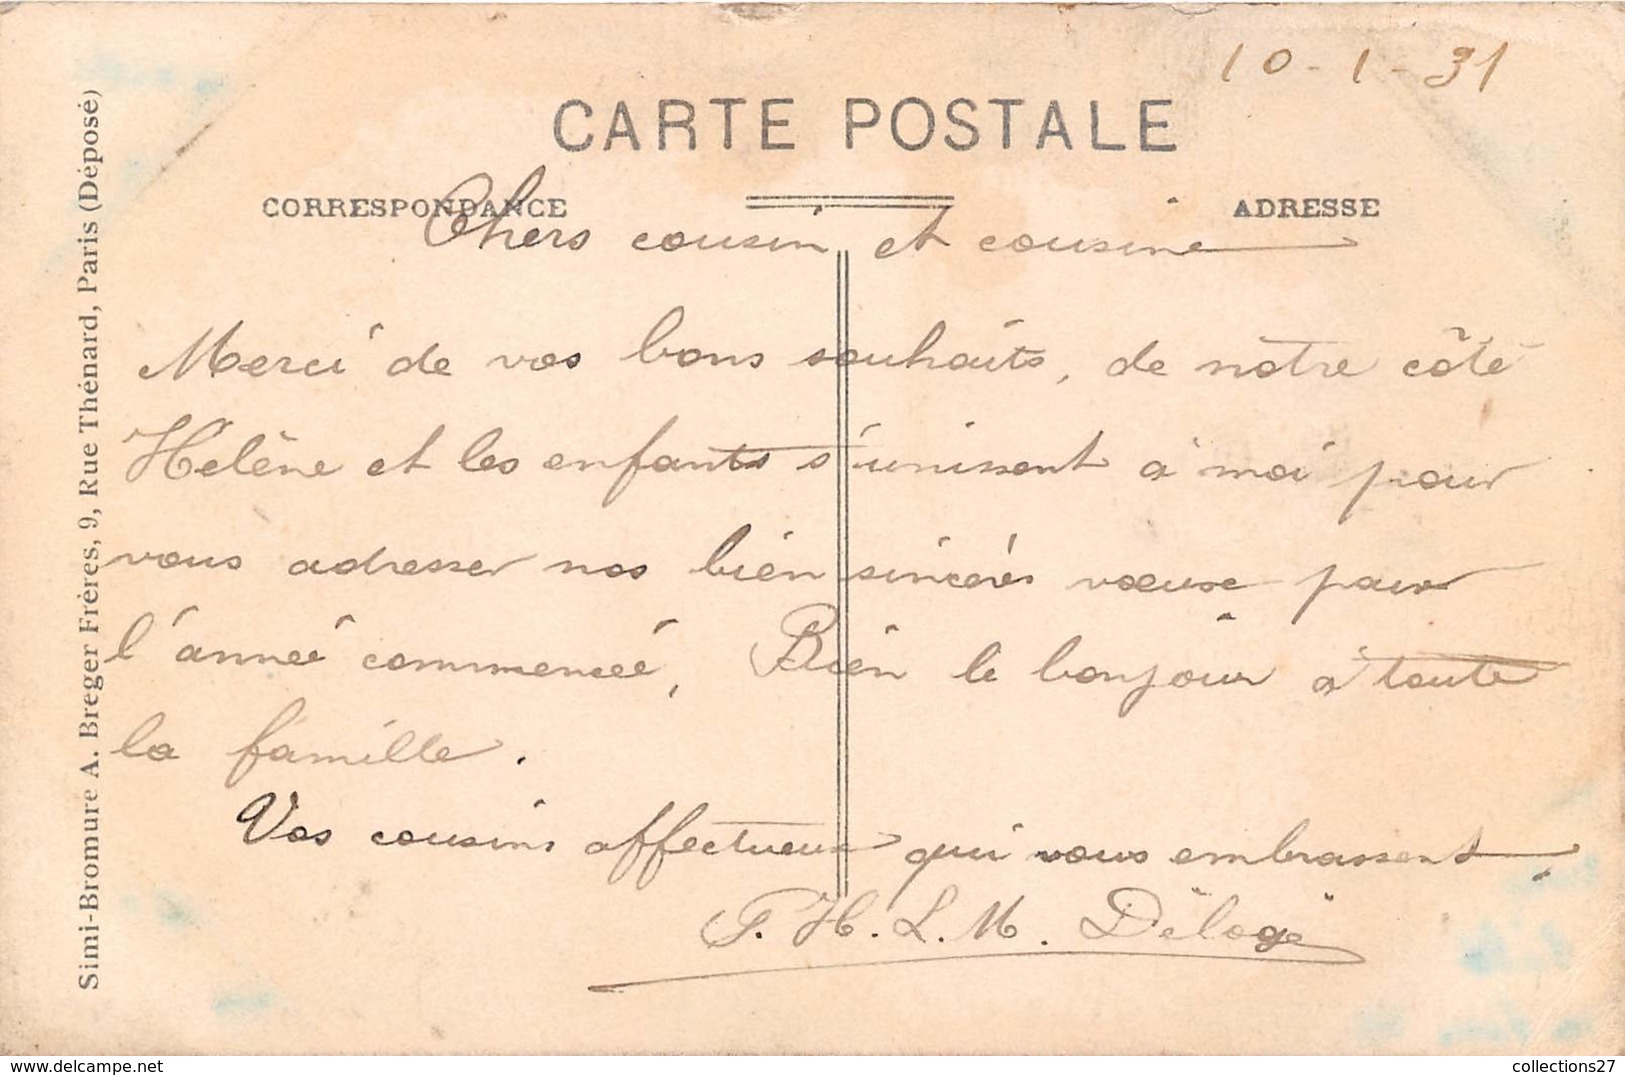 10-1-31
CARTE POSTALE
CORRESPONDANCE
ADRESSE
Chers cousin et cousine
Merci de vos bons souhaits, de nôtre côté
Hélène et les enfants s'unissent à moi pour
vous adresser nos bien sincères voeux pour
l'année commencée, Bien le bonjour à toute
la famille.
Vos cousins affectueux qui vous embrassent.
F. H. L. M. Délogé
Simi-Bromure A. Breger Frères, 9, Rue Thénard, Paris (Déposé)
collections27